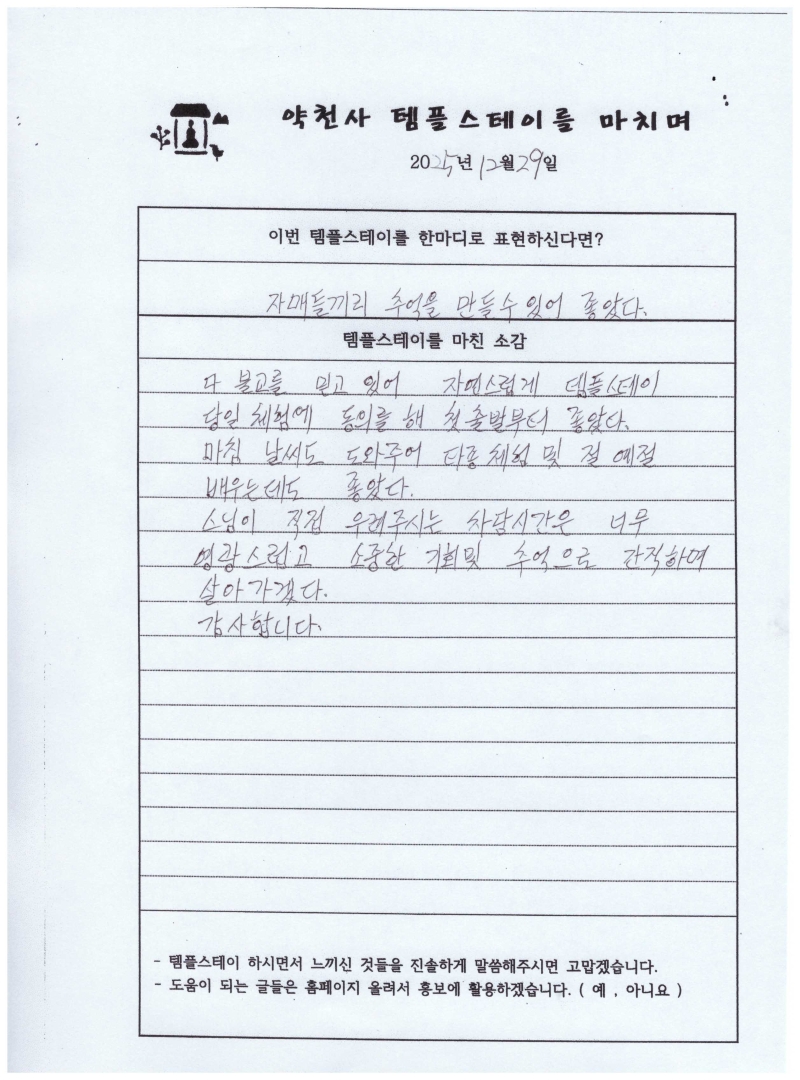 약천사 템플스테이를 마치며
2025년 12월 29일
이번 템플스테이를 한마디로 표현하신다면?
자매들끼리 추억을 만들수 있어 좋았다.
템플스테이를 마친 소감
다 불교를 믿고 있어 자연스럽게 템플스테이
당일 체험에 동의를 해 첫 출발부터 좋았다.
마침 날씨도 도와주어 타종 체험 및 절 예절
배우는데도 좋았다.
스님이 직접 우려주시는 차담시간은 너무
영광스럽고 소중한 기회및 추억으로 간직하며
살아가겠다.
감사합니다.
- 템플스테이 하시면서 느끼신 것들을 진솔하게 말씀해주시면 고맙겠습니다.
- 도움이 되는 글들은 홈페이지 올려서 홍보에 활용하겠습니다. ( 예 , 아니요 )